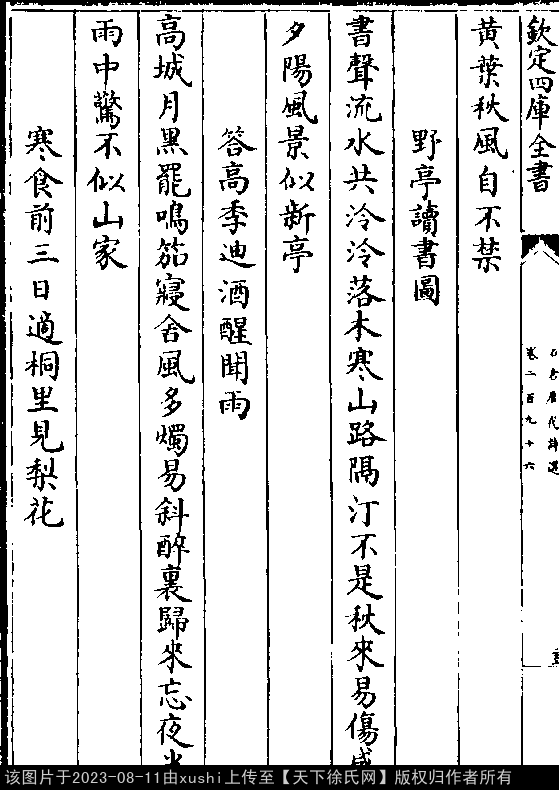 欽定四庫全書
卷二百九十六
黄葉秋風自不禁
野亭讀書圖
書聲流水共泠泠落木寒山路隔汀不是秋來易傷感
夕陽風景似新亭
答高季迪酒醒聞雨
高城月黑罷鳴笳寢舍風多燭易斜醉裏歸來忘夜
雨中驚不似山家
寒食前三日適桐里見梨花
该图片于2023-08-11由xushi上传至【天下徐氏网】版权归作者所有